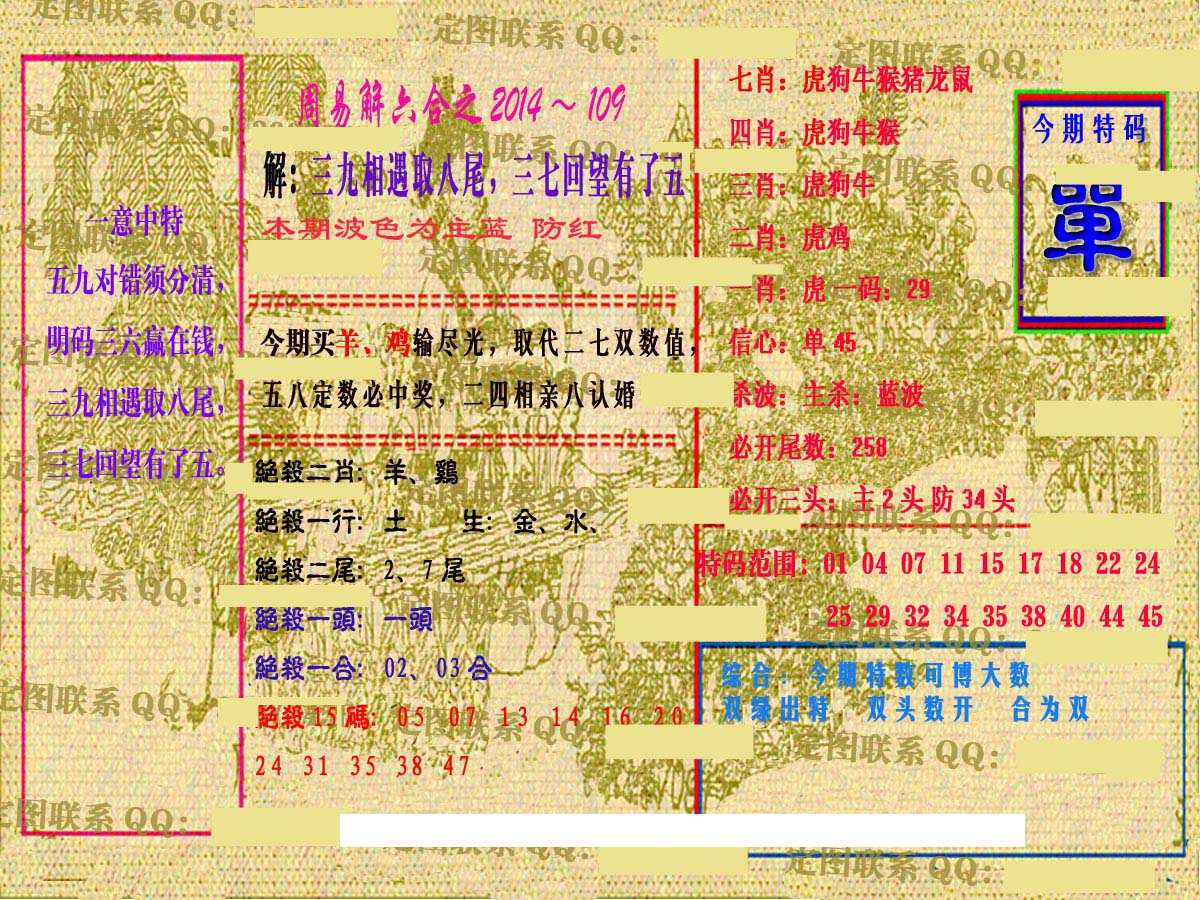 周易解六合之2014～109
解：三九相遇取八尾，三七回望有了五
本期波色为主蓝 防红
一意中特
五九对错须分清，
明码三六赢在钱，
三九相遇取八尾，
三七回望有了五。
今期买羊、鸡输尽光，取代二七双数值，
五八定数必中奖，二四相亲八认婚
絕殺二肖：羊、鷄
絕殺一行：土 生：金、水、
絕殺二尾：2、7尾
絕殺一頭：一頭
絕殺一合：02、03合
絕殺15碼：05 07 13 14 16 20
24 31 35 38 47
七肖：虎狗牛猴猪龙鼠
四肖：虎狗牛猴
三肖：虎狗牛
二肖：虎鸡
一肖：虎 一码：29
信心：单 45
杀波：主杀：蓝波
必开尾数：258
必开三头：主2头防34头
今期特码
單
特码范围：01 04 07 11 15 17 18 22 24
25 29 32 34 35 38 40 44 45
综合：今期特数可博大数
双绿出特 双头数开 合为双
定图联系 QQ：
定图联系 QQ：
定图联系 QQ：
定图联系 QQ：
定图联系 QQ：
定图联系 QQ：
定图联系 QQ：
定图联系 QQ：